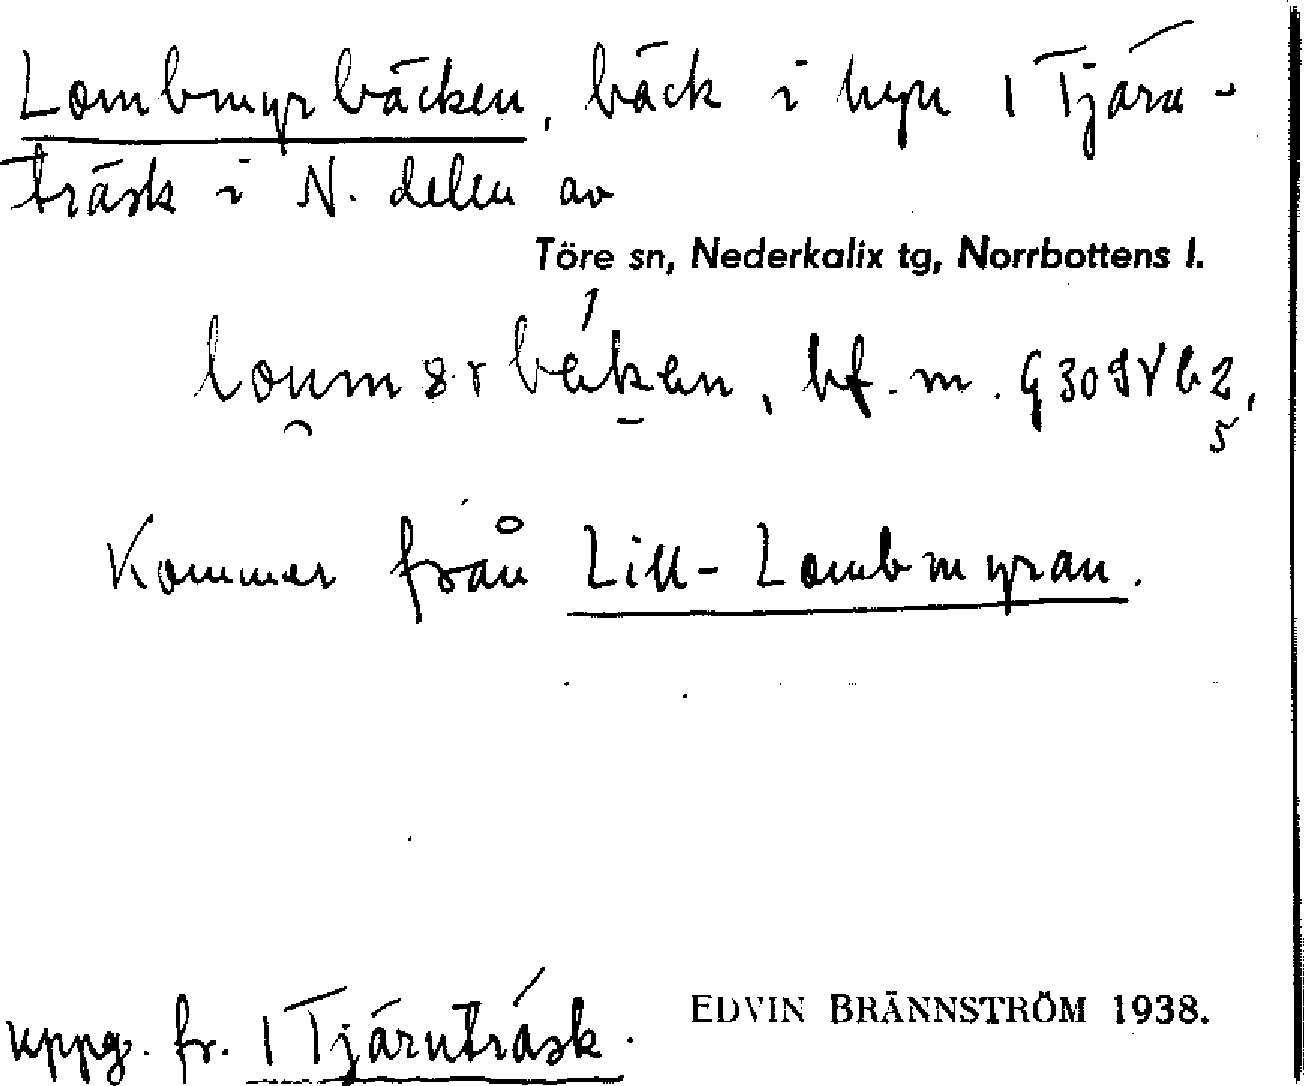 Lombmyrbäcken, bäck i byn 1 Tjärn-
träsk i N. delen av
Töre sn, Nederkalix tg, Norrbottens l.
bf. m.
Kommer från Lill-Lombmyran.
uppg. fr. 1 Tjärnträsk.
EDVIN BRÄNNSTRÖM 1938.